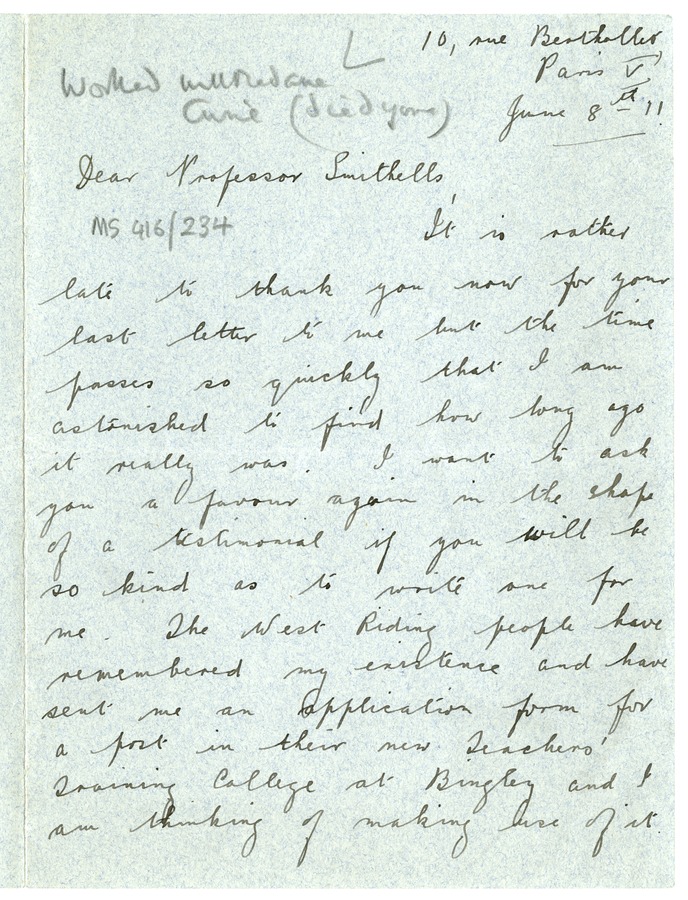 10, rue Berthollet
Paris V
June 8th 11
Worked with Madame
Curie (died young)
Dear Professor Smithells,
MS 416/234
It is rather
late to thank you now for your
last letter to me but the time
passes so quickly that I am
astonished to find how long ago
it really was. I want to ask
you a favour again in the shape
of a testimonial if you will be
so kind as to write one for
me. The West Riding people have
remembered my existence and have
sent me an application form for
a post in their new Teachers'
Training College at Bingley and I
am thinking of making use of it.